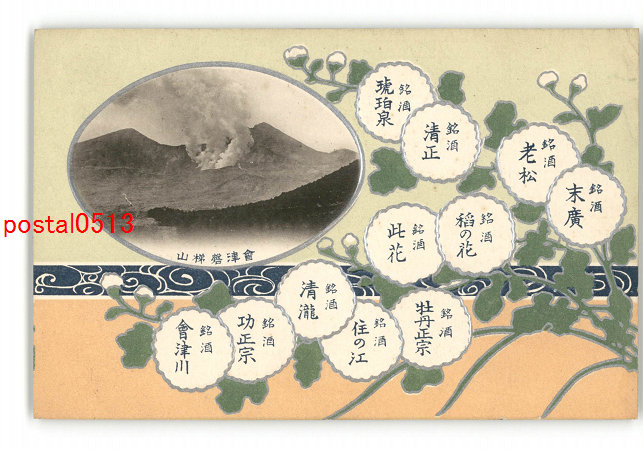 銘酒 琥珀泉
銘酒 清正
銘酒 老松
銘酒 末廣
銘酒 稲の花
銘酒 此花
會津磐梯山
銘酒 牡丹正宗
銘酒 住の江
銘酒 清瀧
銘酒 功正宗
銘酒 會津川
postal0513